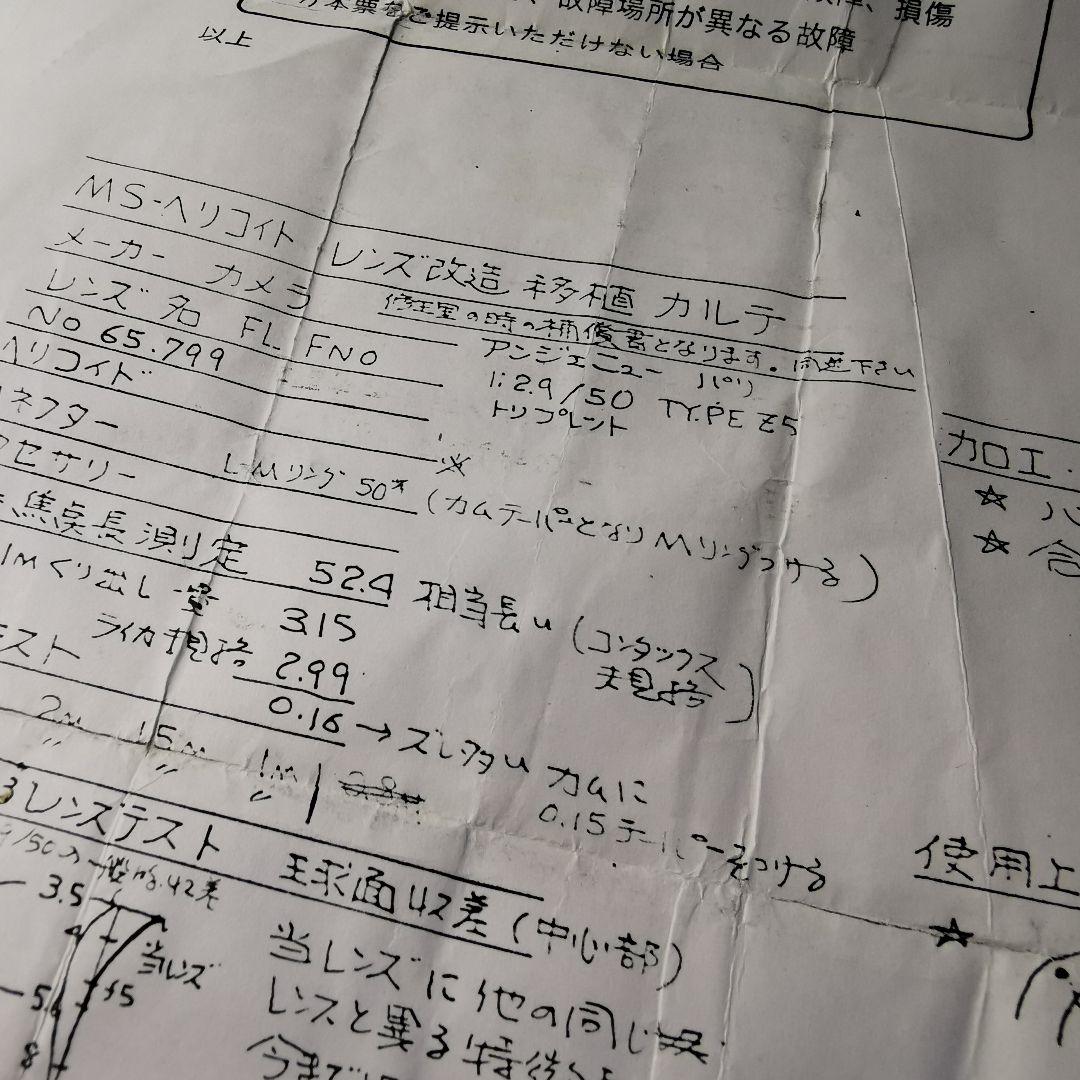 故障場所が異なる故障、損傷
本票をご提示いただけない場合
以上
MS-ヘリコイト レンズ改造 移植 カルテ
メーカー カメラ 修理室の時の補償書となります。同送下さい
レンズ名 FL FNO アンジェニュー パリ
No 65.799 1:2.9/50 TYPE Z5
トリプレント
ヘリコイド
ネクター ※
セサリー L-Mリング 50 (カムテーパーとなりMリングつける)
焦点長測定 52.4 相当長い (コンタックス規格)
1Mくり出し量 3.15
ライカ規格 2.99
スト 0.16→ズレ多い カムに
0.15テーパーをつける
2m 1.5m 1m
〃 〃 〃
レンズテスト 球面収差(中心部)
3.5
4
当レンズ
5.6
8
当レンズに他の同じ
レンズと異る
今まで
加工
☆ ハ
☆ 合
使用上
☆